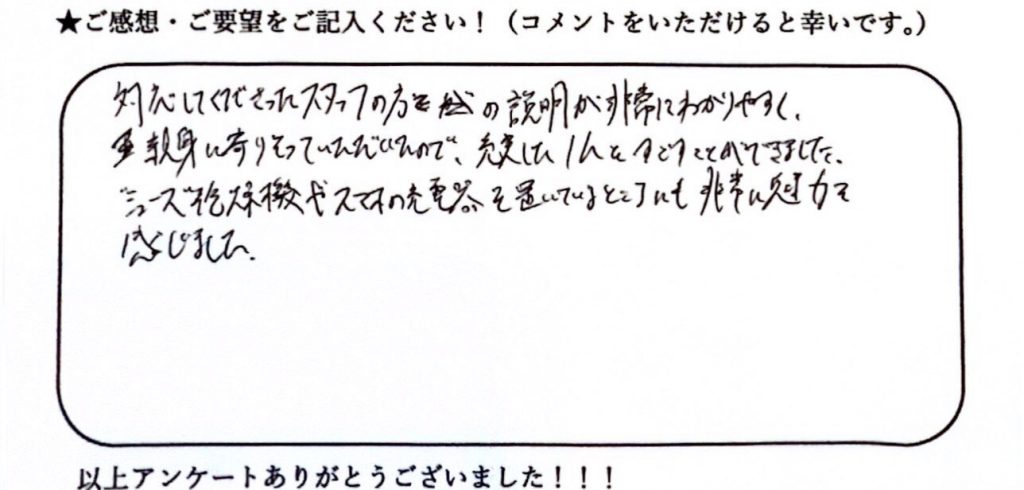 ★ご感想・ご要望をご記入ください！（コメントをいただけると幸いです。）
対応してくださったスタッフの方の説明が非常にわかりやすく、
親身に寄りそっていただいたので、充実した1日をすごすことができました。
シューズ乾燥機やスマホの充電器を置いているところにも非常に魅力を
感じました。
以上アンケートありがとうございました！！！